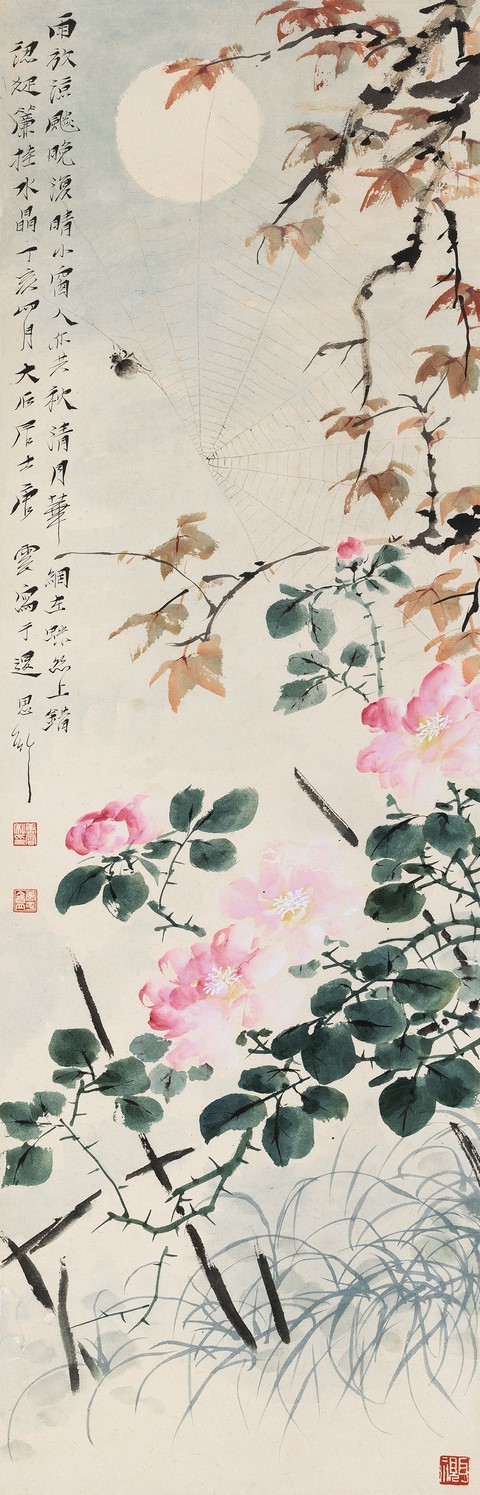 雨放涼晚晴小窗人亦共秋清月華網在蛛絲上錯
認簾挂水晶丁亥四月大石居士唐雲寫于思